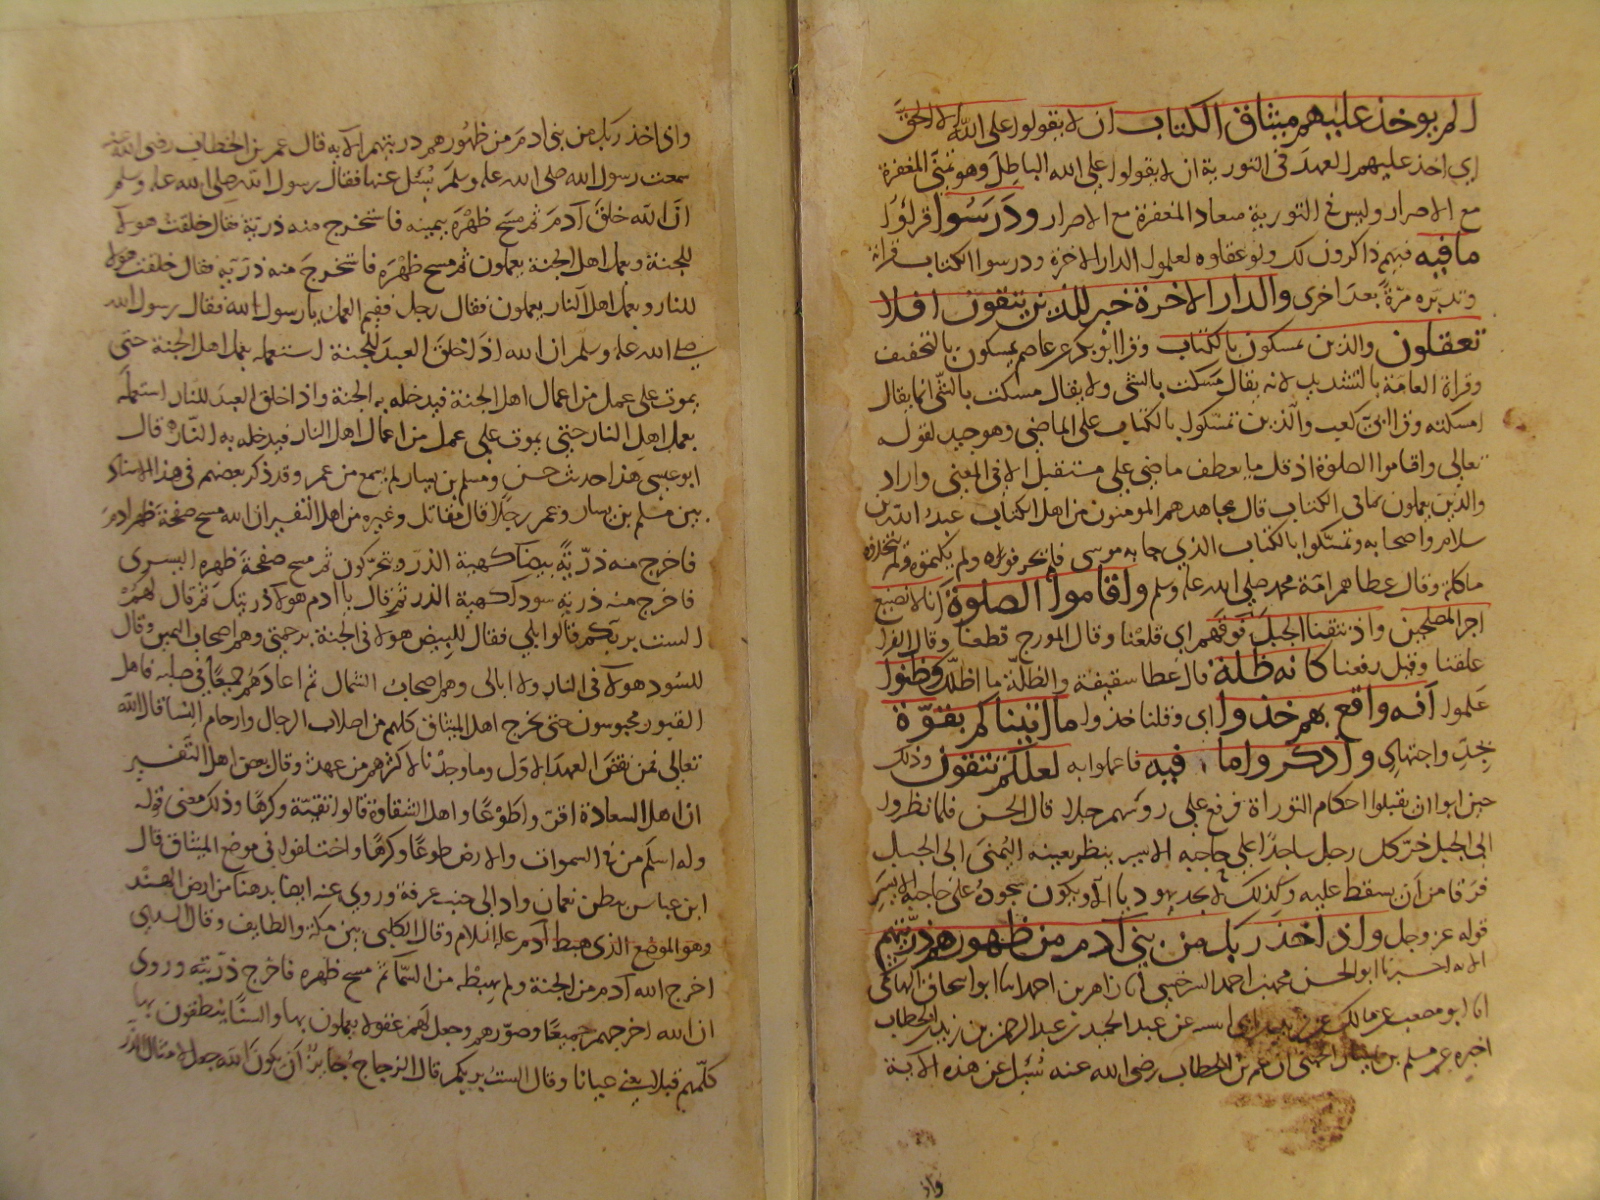 الم يوخذ عليهم ميثاق الكتاب ان لا يقولوا على الله الا الحق
اي اخذ عليهم العهد في التورية ان لا يقولوا على الله الباطل وهو تمنى المغفرة
مع الاصرار وليس في التورية ميعاد المغفرة مع الاصرار ودرسوا قرلوا
ما فيه فهم ذاكرون لك ولو عقلوه لعملوا الدار الاخرة ودرسوا الكتاب قراة
وتدبره مرة بعد اخرى والدار الاخرة خير للذين يتقون افلا
تعقلون والذين يمسكون بالكتاب وقرا ابو بكر عن عاصم يمسكون بالتخفيف
وقراة العامة بالتشديد لانه يقال مسكت بالشي ولا يقال امسكت بالشي انما يقال
امسكته وقرا ابي بن كعب والذين تمسكوا بالكتاب على الماضي وهو جيد لقوله
تعالى واقاموا الصلوة اذ قل ما يعطف ماضي على مستقبل الا في المعنى واراد
والذين يعملون بما في الكتاب قال مجاهد هم المومنون من اهل الكتاب عبد الله بن
سلام واصحابه وتمسكوا بالكتاب الذي جا به موسى فلم يحرفوه ولم يكتموه ولم يتخذوه
ماكلة وقال عطا هم امة محمد صلى الله عليه وسلم واقاموا الصلوة انا لا نضيع
اجر المصلحين واذ نتقنا الجبل فوقهم اي قلعنا وقال المورج قطعنا وقال الفرا
علقنا وقيل رفعنا كانه ظلة قال عطا سقيفة والظلة ما اظلك وظنوا
علموا انه واقع بهم خذوا اي وقلنا خذوا ما اتيناكم بقوة
بجد واجتهاد واذكروا ما فيه فاعملوا به لعلكم تتقون وذلك
حين ابوا ان يقبلوا احكام التوراة فرفع على روسهم جبلا قال الحسن فلما نظروا
الى الجبل خر كل رجل ساجدا على حاجبه الايسر ينظر بعينه اليمنى الى الجبل
فرقا من ان يسقط عليه وكذلك لا تجد يهوديا الا ويكون سجوده على حاجبه الايسر
قوله عز وجل واذ اخذ ربك من بني آدم من ظهورهم ذريتهم
الاية اخبرنا ابو الحسن محمد بن احمد السرخسي انا زاهر بن احمد انا ابو اسحاق الهاشمي
انا ابو مصعب عن مالك عن زيد بن ابي انيسه عن عبد الحميد بن عبد الرحمن بن زيد بن الخطاب
اخبره عن مسلم بن يسار الجهني ان عمر بن الخطاب رضى الله عنه سئل عن هذه الاية
واذ
واذ اخذ ربك من بني ادم من ظهورهم ذريتهم الايه قال عمر بن الخطاب رضى الله عنه
سمعت رسول الله صلى الله عليه وسلم يسئل عنها فقال رسول الله صلى الله عليه وسلم
ان الله خلق آدم ثم مسح ظهره بيمينه فاستخرج منه ذرية فقال خلقت هولا
للجنة وبعمل اهل الجنة يعملون ثم مسح ظهره فاستخرج منه ذرية فقال خلقت هولا
للنار وبعمل اهل النار يعملون فقال رجل ففيم العمل يا رسول الله فقال رسول الله
صلى الله عليه وسلم ان الله اذا خلق العبد للجنة استعمله بعمل اهل الجنة حتى
يموت على عمل من اعمال اهل الجنة فيدخله به الجنة واذا خلق العبد للنار استعمله
بعمل اهل النار حتى يموت على عمل من اعمال اهل النار فيدخله به النار قال
ابو عيسى هذا حديث حسن ومسلم بن يسار لم يسمع من عمر وقد ذكر بعضهم في هذا الاسناد
بين مسلم بن يسار وعمر رجلا قال مقاتل وغيره من اهل التفسير ان الله مسح صفحة ظهر ادم
فاخرج منه ذرية بيضا كهية الذر يتحركون ثم مسح صفحة ظهره اليسرى
فاخرج منه ذرية سودا كهية الذر ثم قال يا ادم هولا ذريتك ثم قال لهم
الست بربكم قالوا بلى فقال للبيض هولا في الجنة برحمتي وهم اصحاب اليمين وقال
للسود هولا في النار ولا ابالى وهم اصحاب الشمال ثم اعادهم جميعا في صلبه فاهل
القبور محبوسون حتى يخرج اهل الميثاق كلهم من اصلاب الرجال وارحام النسا قال الله
تعالى فمن نقض العهد الاول وما وجدنا لاكثرهم من عهد وقال بعض اهل التفسير
ان اهل السعادة اقروا طوعا واهل الشقاوة قالوا تقية وكرها وذلك معنى قوله
وله اسلم من في السموات والارض طوعا وكرها واختلفوا في موضع الميثاق قال
ابن عباس ببطن نعمان واد الى جنب عرفة وروي عنه ايضا بدهنا من ارض الهند
وهو الموضع الذي هبط آدم عليه السلام وقال الكلبي بين مكة والطايف وقال السدي
اخرج الله آدم من الجنة ولم يهبطه من السما ثم مسح ظهره فاخرج ذريته وروى
ان الله اخرجهم جميعا وصورهم وجعل لهم عقولا يعلمون بها والسنا ينطقون بها
كلمهم قبلا يعني عيانا وقال الست بربكم قال الزجاج وجايز ان يكون الله جعل لامثال الذر